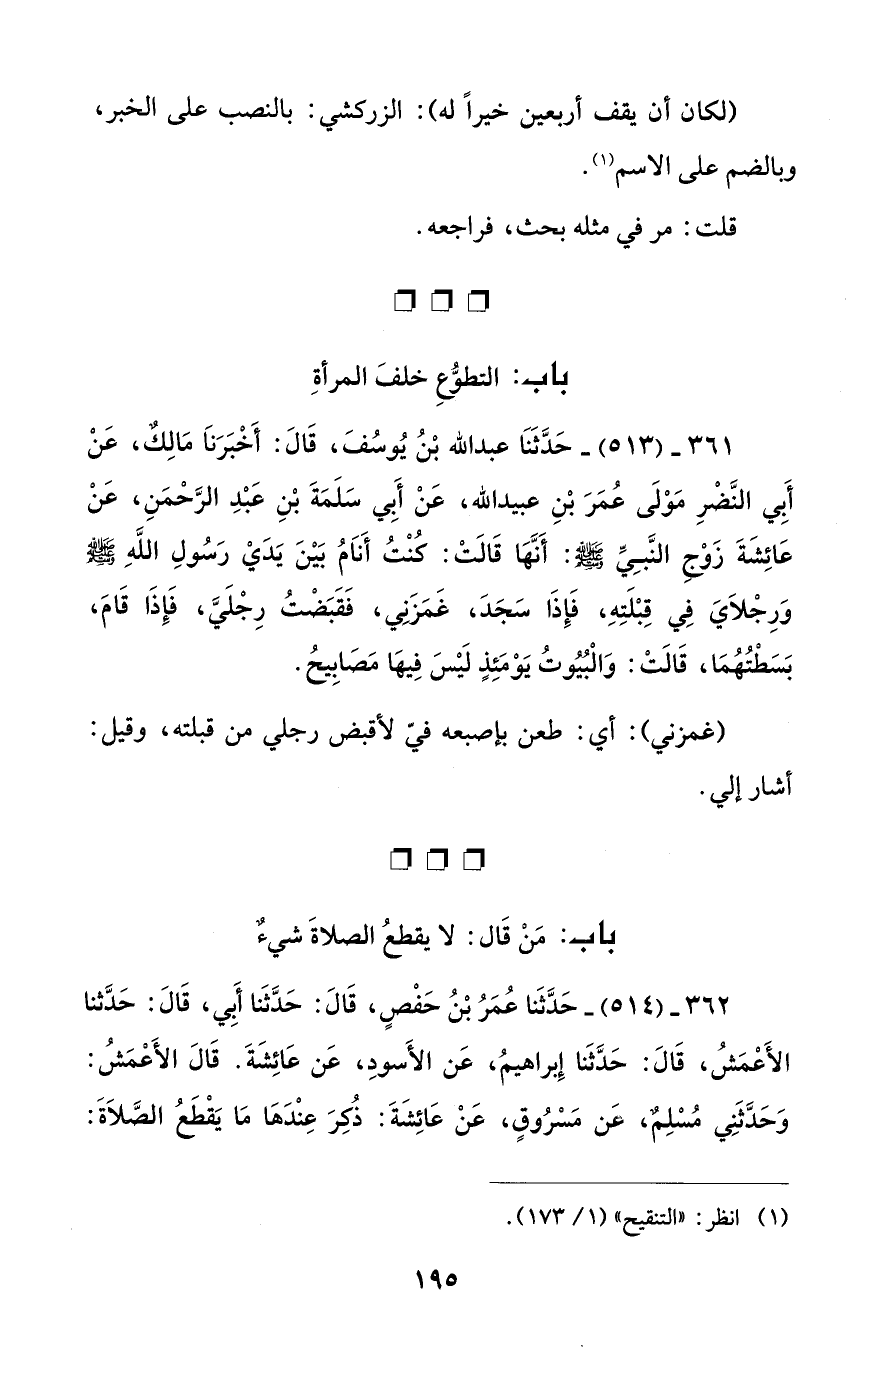 (لكان أن يقف أربعين خيراً له): الزركشي: بالنصب على الخبر،
وبالضم على الاسم(١).
قلت: مر في مثله بحث، فراجعه.
باب: التطوُّعِ خلفَ المرأةِ
٣٦١ ـ (٥١٣) ـ حَدَّثَنَا عبدالله بْنُ يُوسُفَ، قَالَ: أَخْبَرَنَا مَالِكٌ، عَنْ
أَبِي النَّضْرِ مَوْلَى عُمَرَ بْنِ عبيدالله، عَنْ أَبِي سَلَمَةَ بْنِ عَبْدِ الرَّحْمَنِ، عَنْ
عَائِشَةَ زَوْجِ النَّبِيِّ ﷺ: أَنَّهَا قَالَتْ: كُنْتُ أَنَامُ بَيْنَ يَدَيْ رَسُولِ اللَّهِ ﷺ
وَرِجْلاَيَ فِي قِبْلَتِهِ، فَإِذَا سَجَدَ، غَمَزَنِي، فَقَبَضْتُ رِجْلَيَّ، فَإِذَا قَامَ،
بَسَطْتُهُمَا، قَالَتْ: وَالْبُيُوتُ يَوْمَئِذٍ لَيْسَ فِيهَا مَصَابِيحُ.
(غمزني): أي: طعن بإصبعه فيّ لأقبض رجلي من قبلته، وقيل:
أشار إلي.
باب: مَنْ قَال: لا يقطعُ الصلاةَ شيءٌ
٣٦٢ ـ (٥١٤) ـ حَدَّثَنا عُمَرُ بْنُ حَفْصٍ، قَالَ: حَدَّثَنا أَبِي، قَالَ: حَدَّثنا
الأَعْمَشُ، قَالَ: حَدَّثَنا إبراهيمُ، عَنِ الأَسودِ، عَن عَائِشَةَ. قَالَ الأَعْمَشُ:
وَحَدَّثَنِي مُسْلِمٌ، عَن مَسْرُوقٍ، عَنْ عَائِشَةَ: ذُكِرَ عِنْدَهَا مَا يَقْطَعُ الصَّلاَةَ:
(١) انظر: «التنقيح» (١/ ١٧٣).
١٩٥